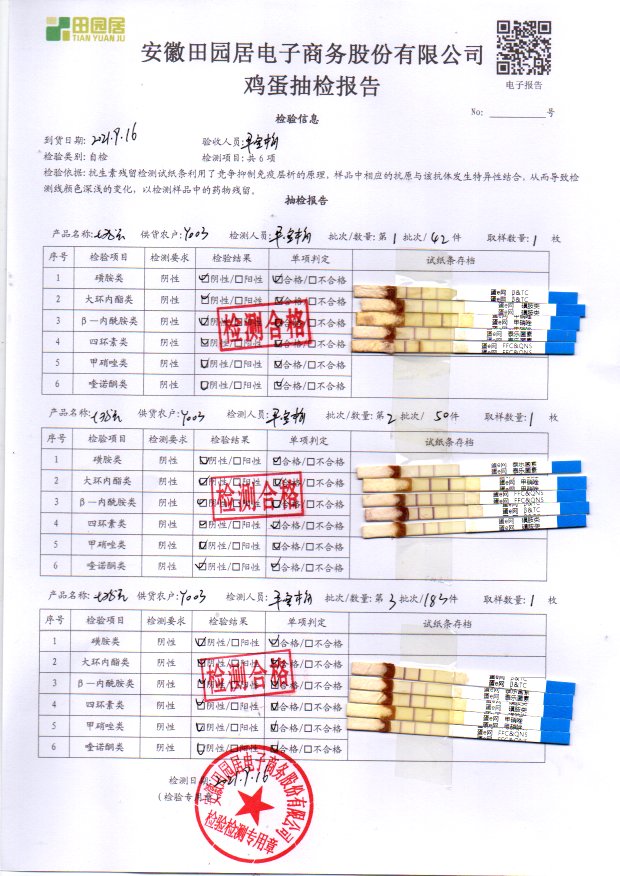 田园居
TIAN YUAN JU
安徽田园居电子商务股份有限公司
鸡蛋抽检报告
电子报告
检验信息
No: ________号
到货日期: 2021.9.16 验收人员:
检验类别: 自检 检测项目: 共 6 项
检验依据: 抗生素残留检测试纸条利用了竞争抑制免疫层析的原理, 样品中相应的抗原与该抗体发生特异性结合, 从而导致检
测线颜色深浅的变化, 以检测样品中的药物残留。
抽检报告
产品名称: 供货农户: Y003 检测人员: 批次/数量: 第 1 批次/ 42 件 取样数量: 1 枚
序号 检验项目 检测要求 检验结果 单项判定 试纸条存档
1 磺胺类 阴性 ☑阴性/☐阳性 ☑合格/☐不合格
2 大环内酯类 阴性 ☑阴性/☐阳性 ☑合格/☐不合格
3 β—内酰胺类 阴性 ☑阴性/☐阳性 ☑合格/☐不合格
4 四环素类 阴性 ☑阴性/☐阳性 ☑合格/☐不合格
5 甲硝唑类 阴性 ☑阴性/☐阳性 ☑合格/☐不合格
6 喹诺酮类 阴性 ☑阴性/☐阳性 ☑合格/☐不合格
蛋e网 B&TC
蛋e网 B&TC
蛋e网 磺胺类
蛋e网 甲硝唑
蛋e网 泰乐菌素
蛋e网 FFC&QNS
检测合格
产品名称: 供货农户: Y003 检测人员: 批次/数量: 第 2 批次/ 50 件 取样数量: 1 枚
序号 检验项目 检测要求 检验结果 单项判定 试纸条存档
1 磺胺类 阴性 ☑阴性/☐阳性 ☑合格/☐不合格
2 大环内酯类 阴性 ☑阴性/☐阳性 ☑合格/☐不合格
3 β—内酰胺类 阴性 ☑阴性/☐阳性 ☑合格/☐不合格
4 四环素类 阴性 ☑阴性/☐阳性 ☑合格/☐不合格
5 甲硝唑类 阴性 ☑阴性/☐阳性 ☑合格/☐不合格
6 喹诺酮类 阴性 ☑阴性/☐阳性 ☑合格/☐不合格
蛋e网 泰乐菌素
蛋e网 甲硝唑
蛋e网 FFC&QNS
蛋e网 B&TC
蛋e网 磺胺类
检测合格
产品名称: 供货农户: Y003 检测人员: 批次/数量: 第 3 批次/ 183 件 取样数量: 1 枚
序号 检验项目 检测要求 检验结果 单项判定 试纸条存档
1 磺胺类 阴性 ☑阴性/☐阳性 ☑合格/☐不合格
2 大环内酯类 阴性 ☑阴性/☐阳性 ☑合格/☐不合格
3 β—内酰胺类 阴性 ☑阴性/☐阳性 ☑合格/☐不合格
4 四环素类 阴性 ☑阴性/☐阳性 ☑合格/☐不合格
5 甲硝唑类 阴性 ☑阴性/☐阳性 ☑合格/☐不合格
6 喹诺酮类 阴性 ☑阴性/☐阳性 ☑合格/☐不合格
蛋e网 B&TC
蛋e网 泰乐菌素
蛋e网 磺胺类
蛋e网 甲硝唑
蛋e网 FFC&QNS
检测合格
检测日期: 2021.9.16
(检验专用章)
安徽田园居电子商务股份有限公司
检验检测专用章